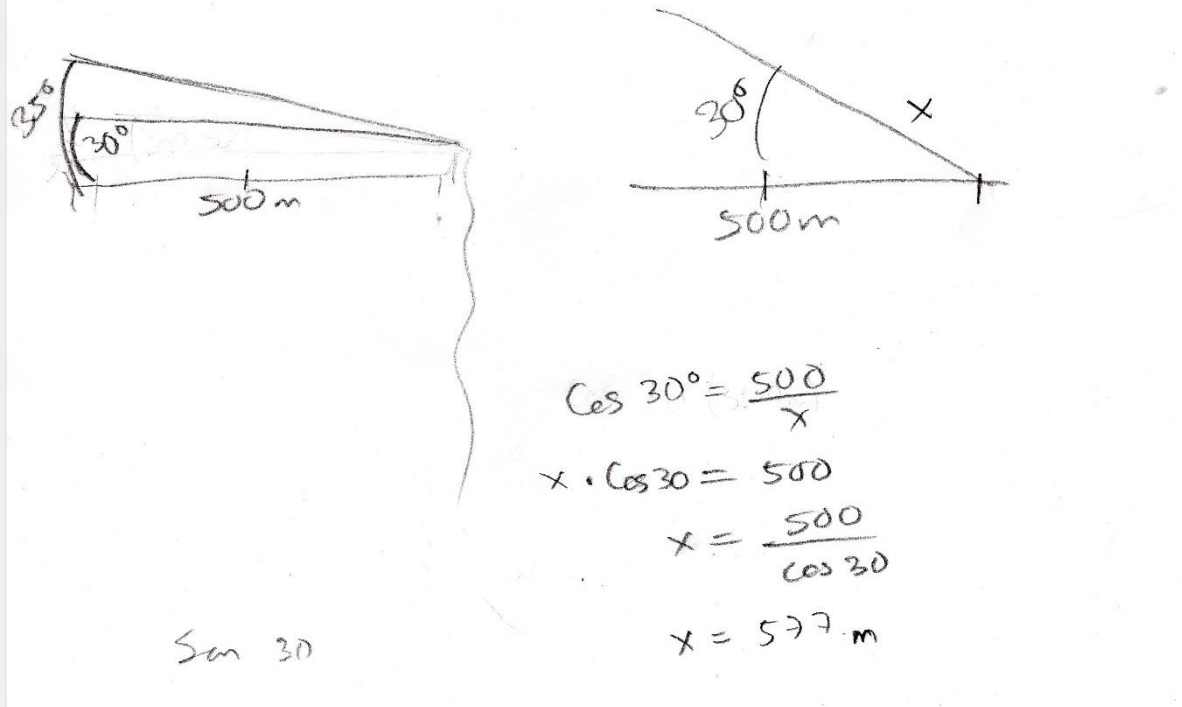 35°
30°
500m
30°
x
500m
Cos 30° = 500/x
x . Cos 30 = 500
x = 500/cos 30
x = 577 m
Sen 30